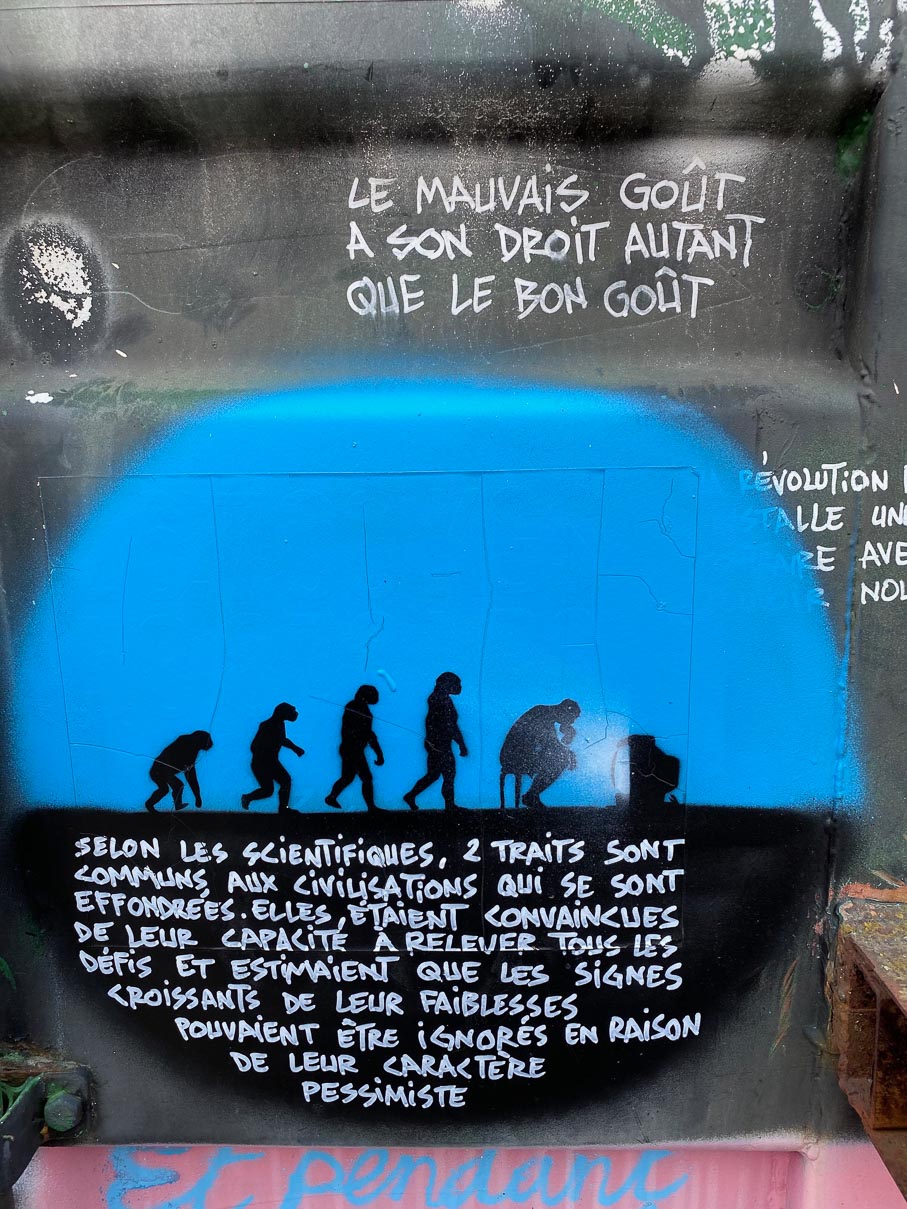 LE MAUVAIS GOÛT
A SON DROIT AUTANT
QUE LE BON GOÛT
ÉVOLUTION
TALLE UN
AVE
NOU
SELON LES SCIENTIFIQUES, 2 TRAITS SONT
COMMUNS AUX CIVILISATIONS QUI SE SONT
EFFONDRÉES. ELLES ÉTAIENT CONVAINCUES
DE LEUR CAPACITÉ À RELEVER TOUS LES
DÉFIS ET ESTIMAIENT QUE LES SIGNES
CROISSANTS DE LEUR FAIBLESSES
POUVAIENT ÊTRE IGNORÉS EN RAISON
DE LEUR CARACTÈRE
PESSIMISTE
Et pendant